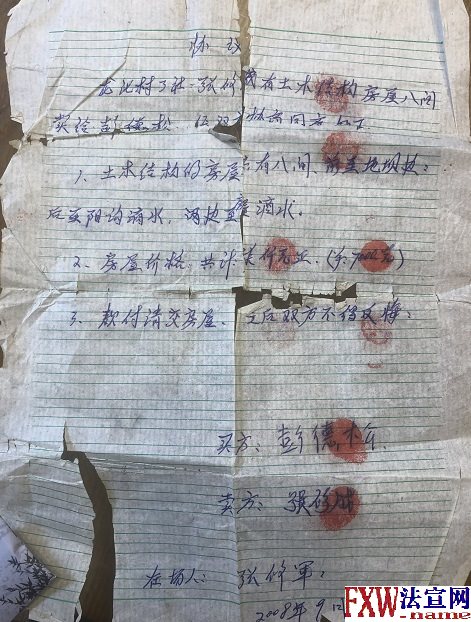 协议
龙北村了社 张修 有土木结构房屋八间
卖给彭德松 经双方 商同意
1、土木结构的房屋 有八间、前至地坝坎;
后至阳沟滴水、两边至 滴水。
2、房屋价格、共计 仟元正、(¥:7000元)
3、款付清交房屋、之后双方不得反悔;
买方: 彭德松
卖方: 张修
在场人: 张修军:
2008年9.12
FXW法宣网
.name